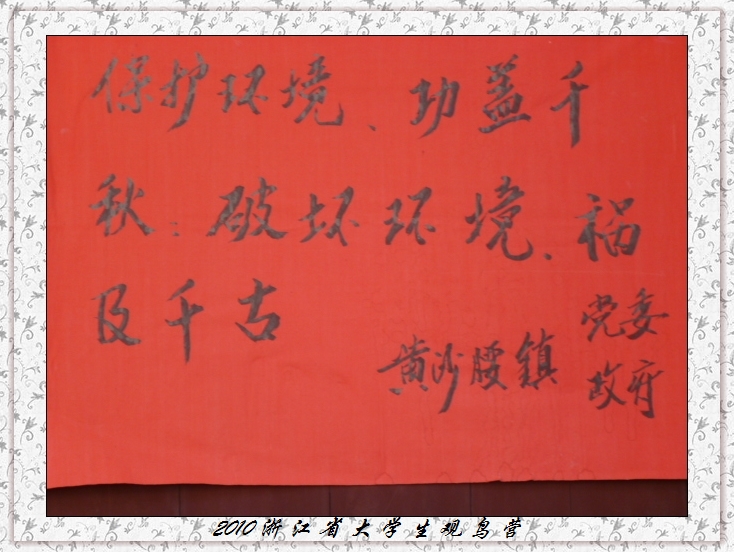 保护环境、功盖千
秋；破坏环境、祸
及千古
黄沙腰镇
党委
政府
2010浙江省大学生观鸟营